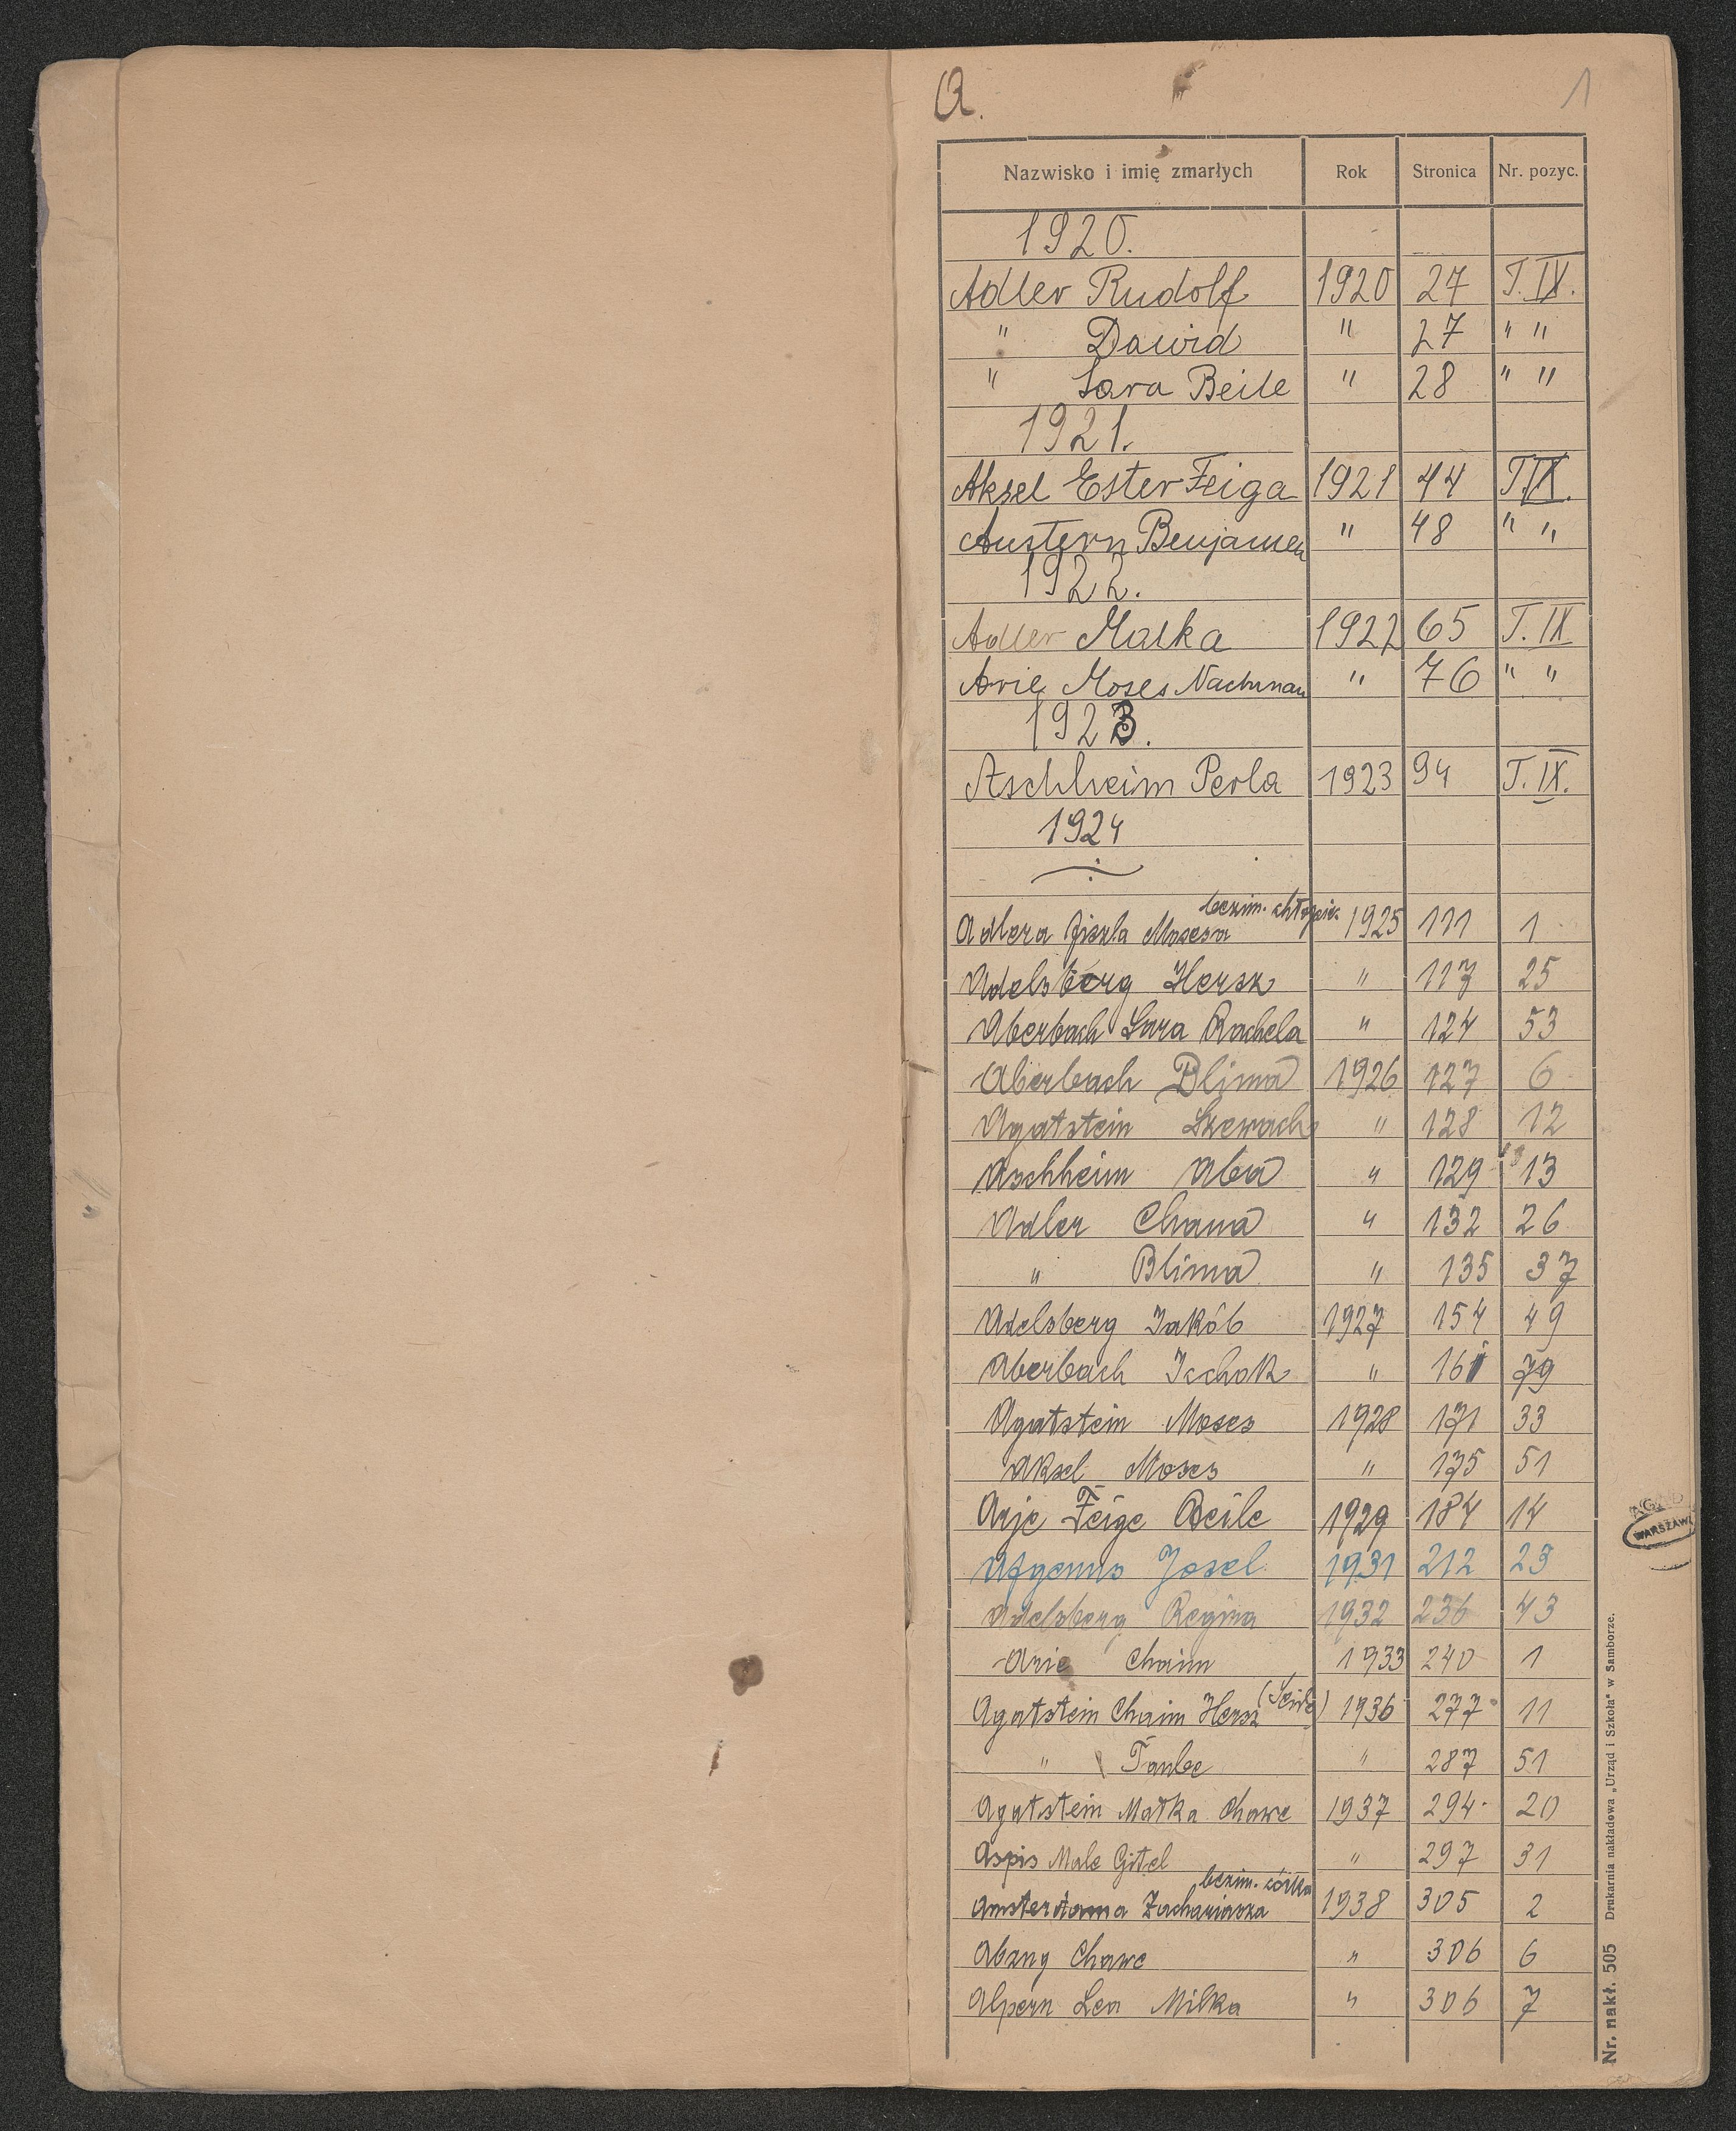 A.
1
Nazwisko i imię zmarłych Rok Stronica Nr. pozyc.
1920.
Adler Rudolf 1920 27 T. IX.
" Dawid " 27 " "
" Sara Beile " 28 " "
1921.
Aksel Ester Feiga 1921 44 T. IX.
Austern Benjamen " 48 " "
1922.
Adler Malka 1922 65 T. IX
Arie Moses Nachman " 76 " "
1923.
Aschheim Perla 1923 94 T. IX.
1924
bezim. chłopiec
Adlera Jiszla Mosesa 1925 111 1
Adelsberg Hersz " 117 25
Aberbach Sara Rachela " 124 53
Aberbach Blima 1926 127 6
Agatstein Szewach " 128 12
Aschheim Aba " 129 13
Adler Chana " 132 26
" Blima " 135 37
Adelsberg Jakób 1927 154 49
Aberbach Icchok " 161 79
Agatstein Moses 1928 171 33
Aksel Moses " 175 51
Arje Feige Beile 1929 184 14
Josel 1931 212 23
Adelsberg Regina 1932 236 43
Arie Chaim 1933 240 1
Agatstein Chaim Hersz 1936 277 11
" Taube " 287 51
Agatstein Matka Chawe 1937 294 20
Aspis Male Gitel " 297 31
bezim. córka
Amsterdama Zachariasza 1938 305 2
Abzny Chawe " 306 6
Alpern Lea Milka " 306 7
Nr. nakł. 505 Drukarnia nakładowa „Urząd i Szkoła" w Samborze.
AGAD
WARSZAWA